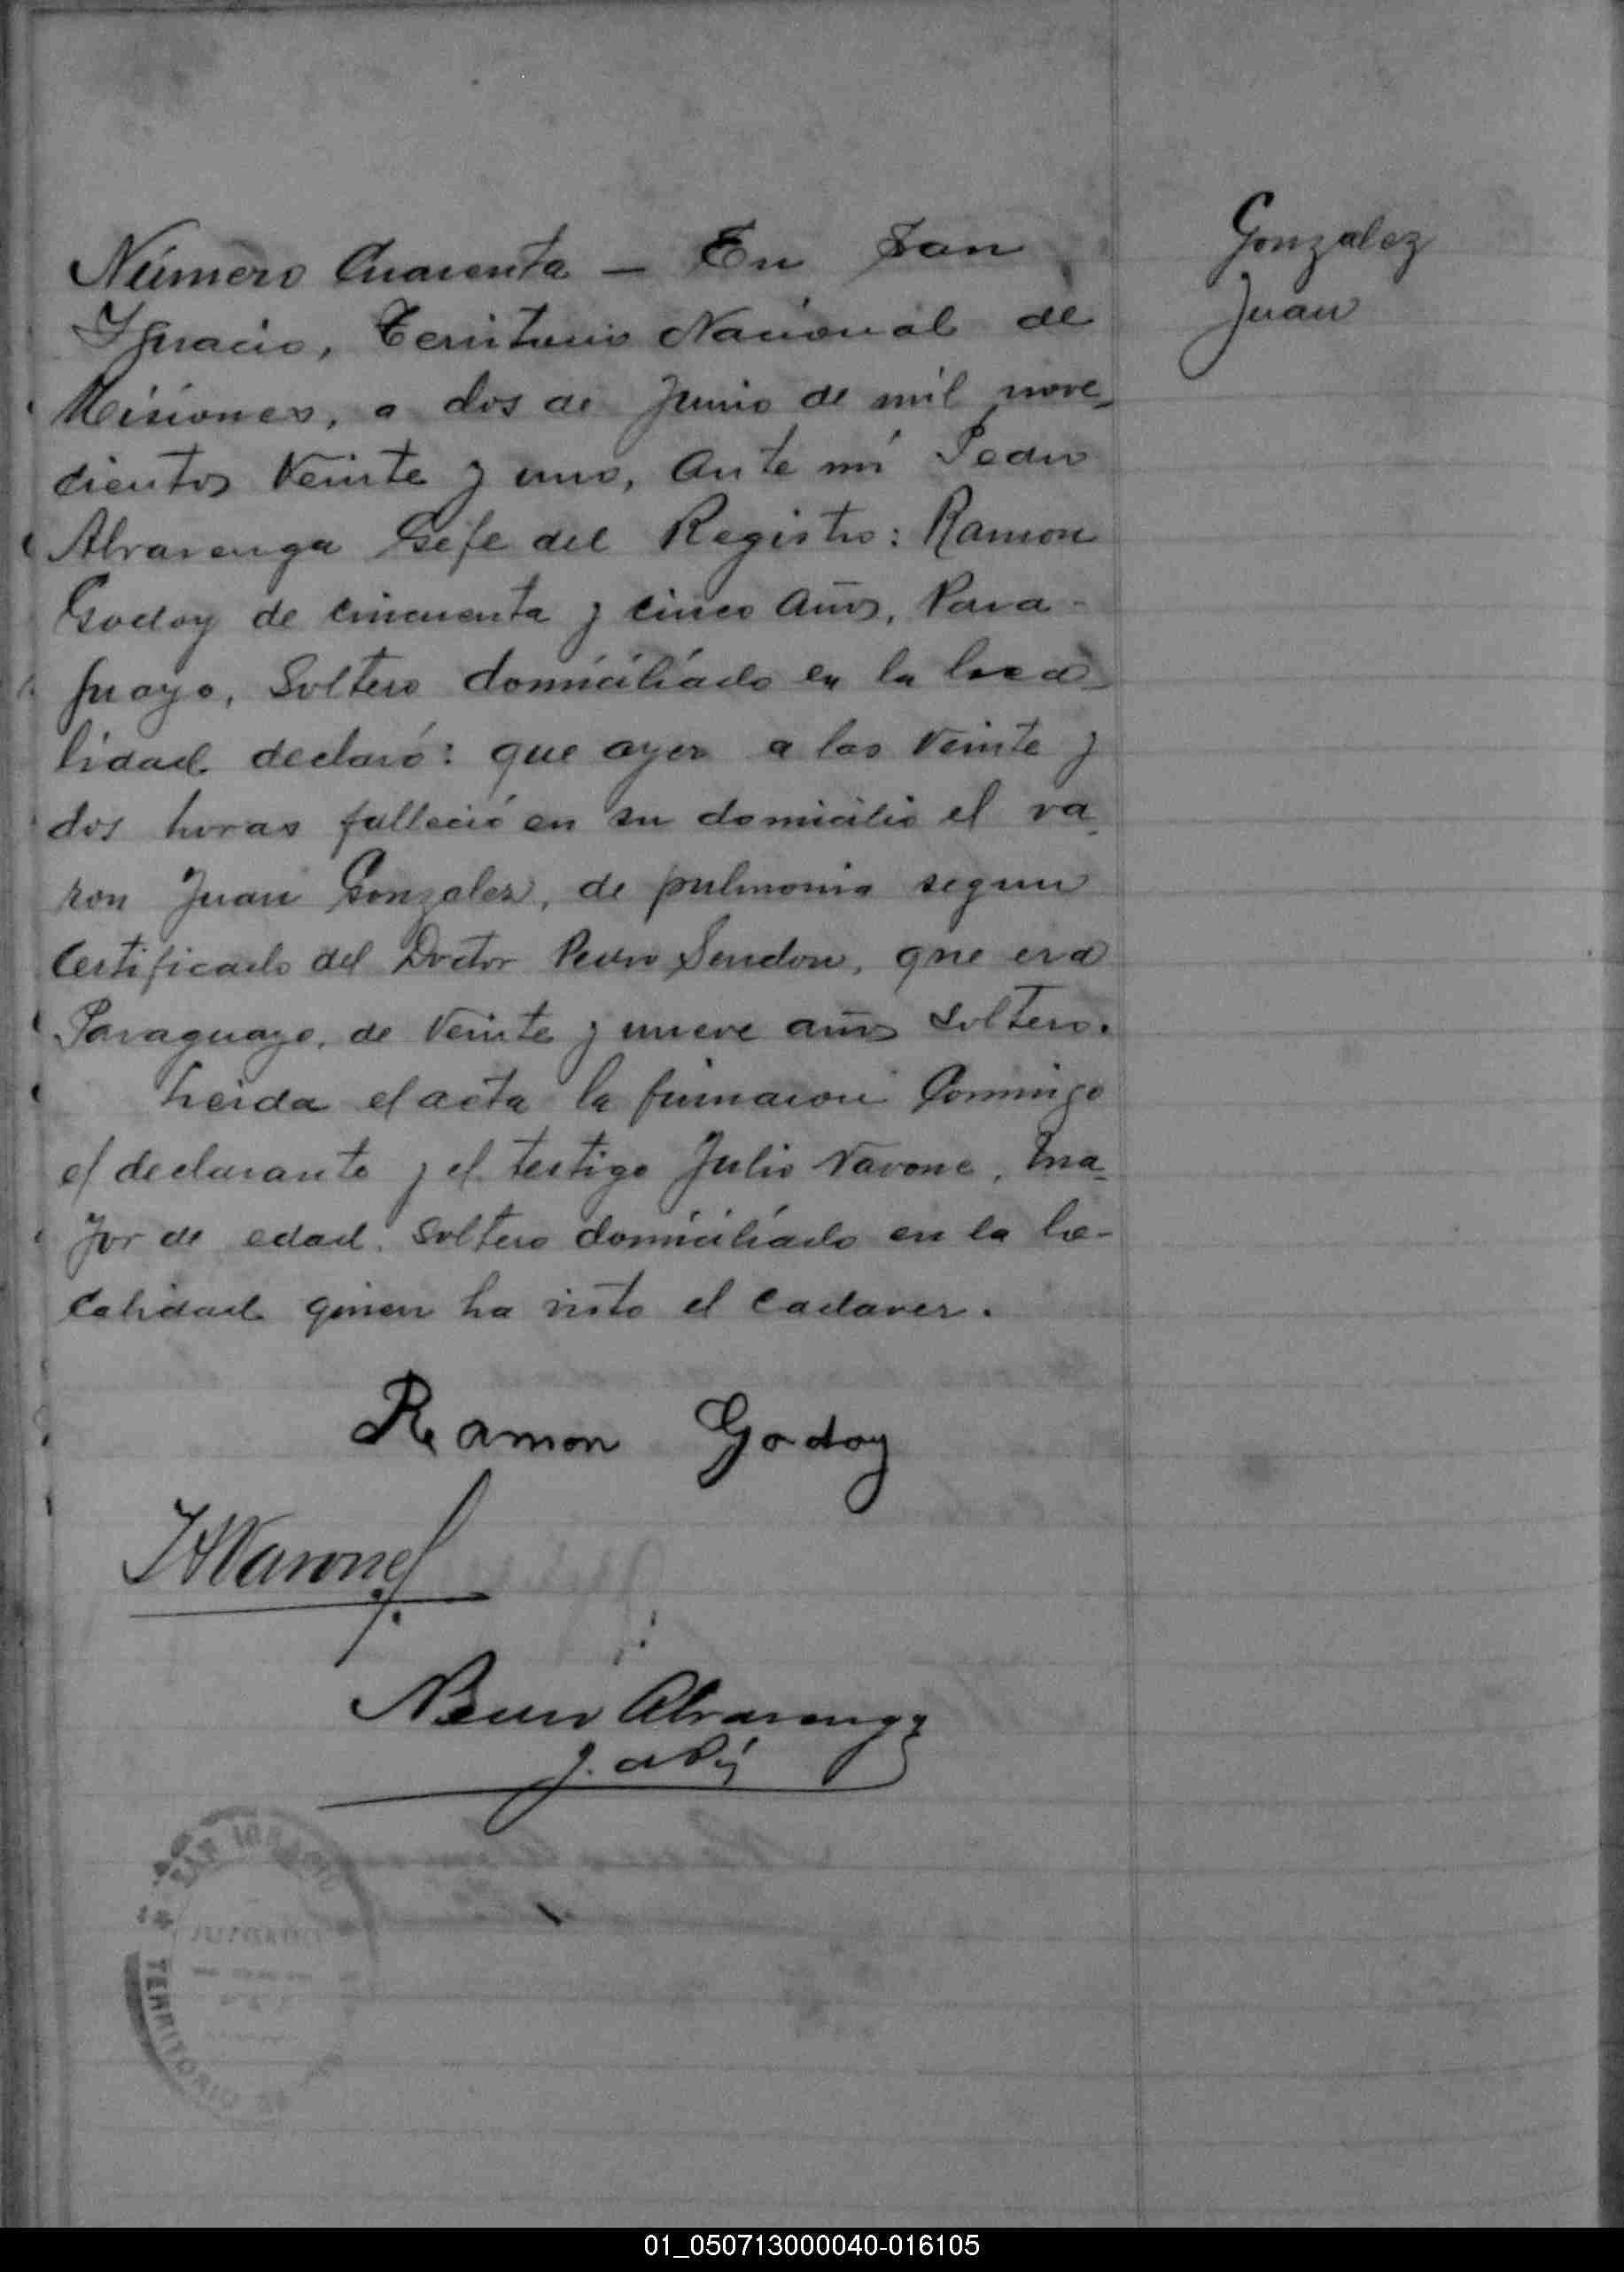 Número Cuarenta — En San
Ignacio, Territorio Nacional de
Misiones, a dos de Junio de mil nove-
cientos Veinte y uno, Ante mí Pedro
Alvarenga Gefe del Registro: Ramon
Godoy de cincuenta y cinco años, Para-
guayo, Soltero domiciliado en la loca-
lidad declaró: que ayer a las Veinte y
dos horas falleció en su domicilio el va-
ron Juan Gonzalez, de pulmonia segun
Certificado del Doctor Pedro Sendon, que era
Paraguayo, de Veinte y nueve años Soltero.
Leida el acta la firmaron Conmigo
el declarante y el testigo Julio Navone, ma-
yor de edad, Soltero domiciliado en la lo-
calidad quien ha visto el Cadaver.
Gonzalez
Juan
Ramon Godoy
Navone
Alvarenga
J. de P.
SAN IGNACIO
JUZGADO
TERRITORIO DE
01_050713000040-016105